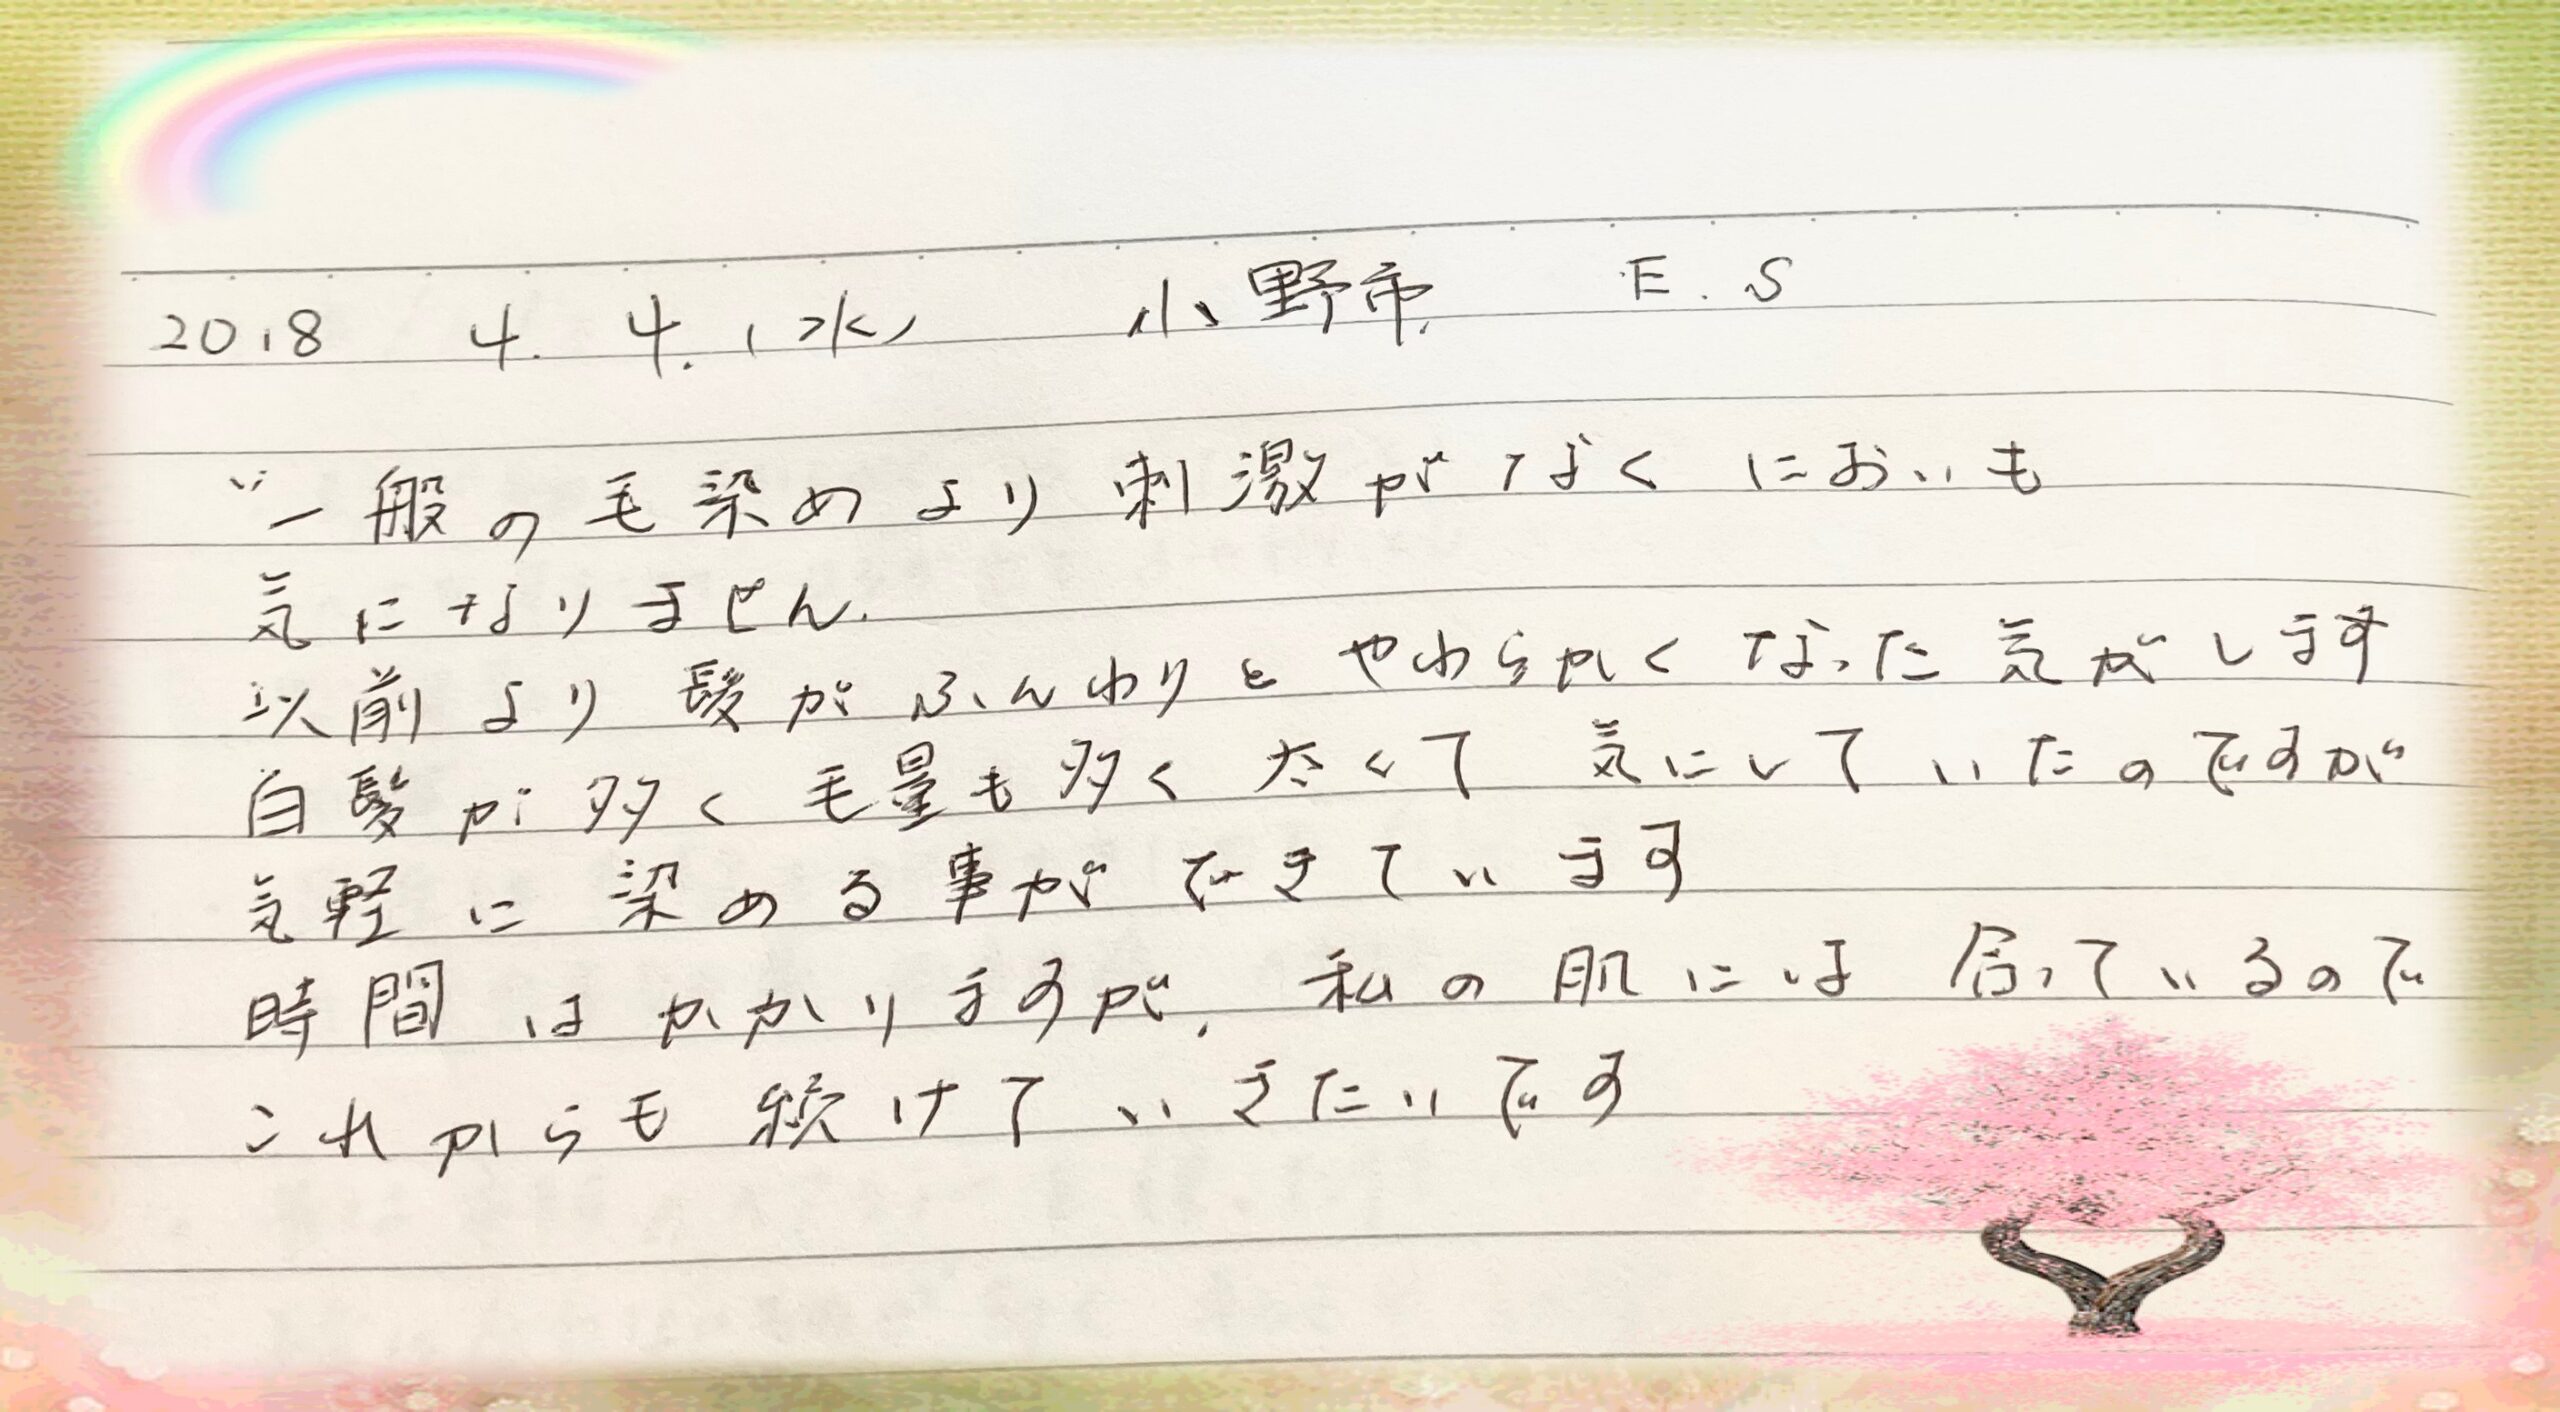 2018 4. 4. (水) 小野市 E.S
一般の毛染めより刺激がなく においも
気になりません.
以前より髪がふんわりとやわらかくなった気がします
白髪が多く毛量も多く太くて気にしていたのですが
気軽に染める事ができています
時間はかかりますが, 私の肌には合っているので
これからも続けていきたいです